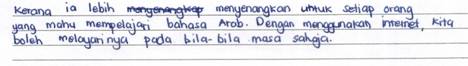 Kerana ia lebih menyenangkan untuk setiap orang
yang mahu mempelajari bahasa Arab. Dengan menggunakan internet, kita
boleh melayarinya pada bila-bila masa sahaja.